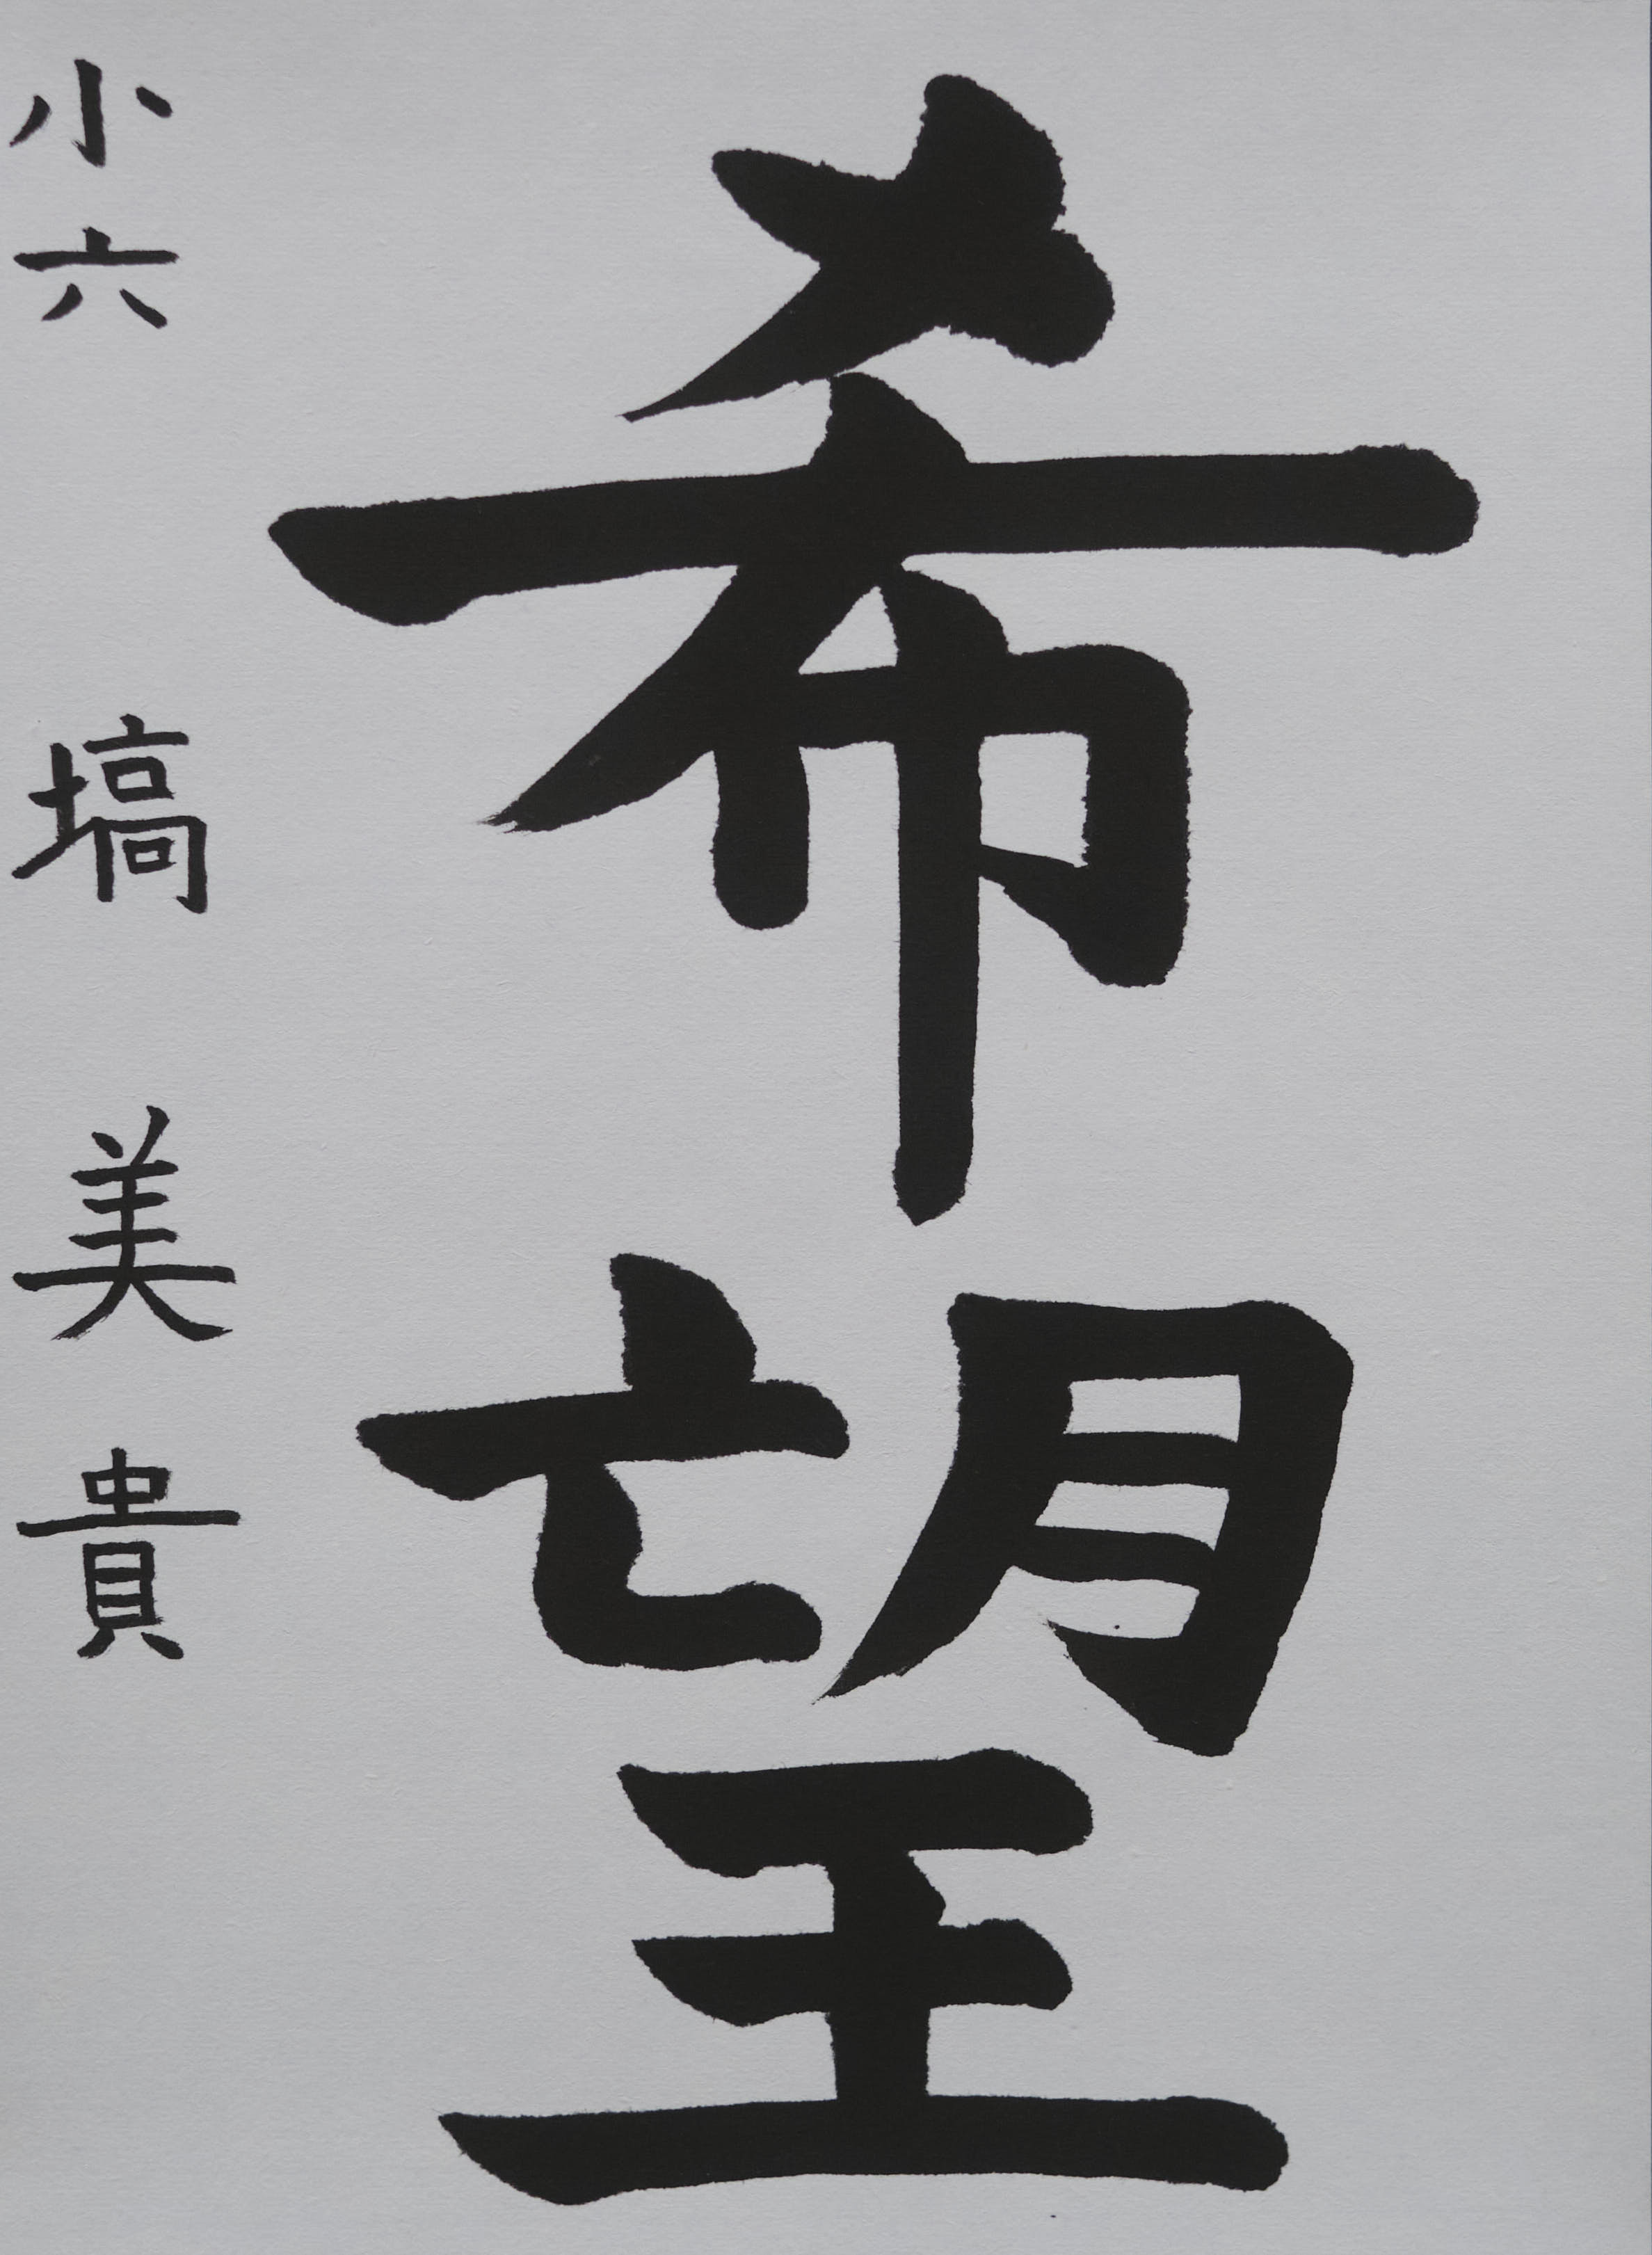 希望
小六 塙 美貴